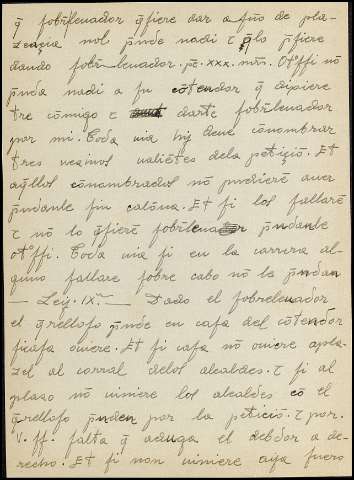 q̄ sobrleuador q̄siere dar a fūo de pla-
zençia nol p̄nde nadi τ q̄lo p̄siere
dando sobre-leuador . pē . xxx . mr̄s . Otºssi nō
p̄nda nadi a su cōtendor q̄ dixiere
tre cōmigo τ darte sobrleuador
por mi . Toda uia
tres uezinos ualiētes dela petiçiō . Et
aq̄llos connombrados nō pudierē auer
p̄ndanle sin calōna . Et si los fallarē
τ nō lo q̄sierē sobrleuar p̄ndanle
otºssi . Toda uia si en la carrera al-
guno fallare sobre cabo nō la p̄ndan
— Leiz . IX.ᵃ — Dado el sobreleuador
el q̄relloso p̄nde en casa del cōtendor
si casa ouiere . Et si casa nō ouiere apla-
zel al corral delos alcaldes . τ si al
plazo nō uiniere los alcaldes cō el
q̄relloso p̄nden por la petiçiō . τ por .
V . ss . falta q̄ aduga el debdor a de-
recho . Et si non uiniere aya fuero